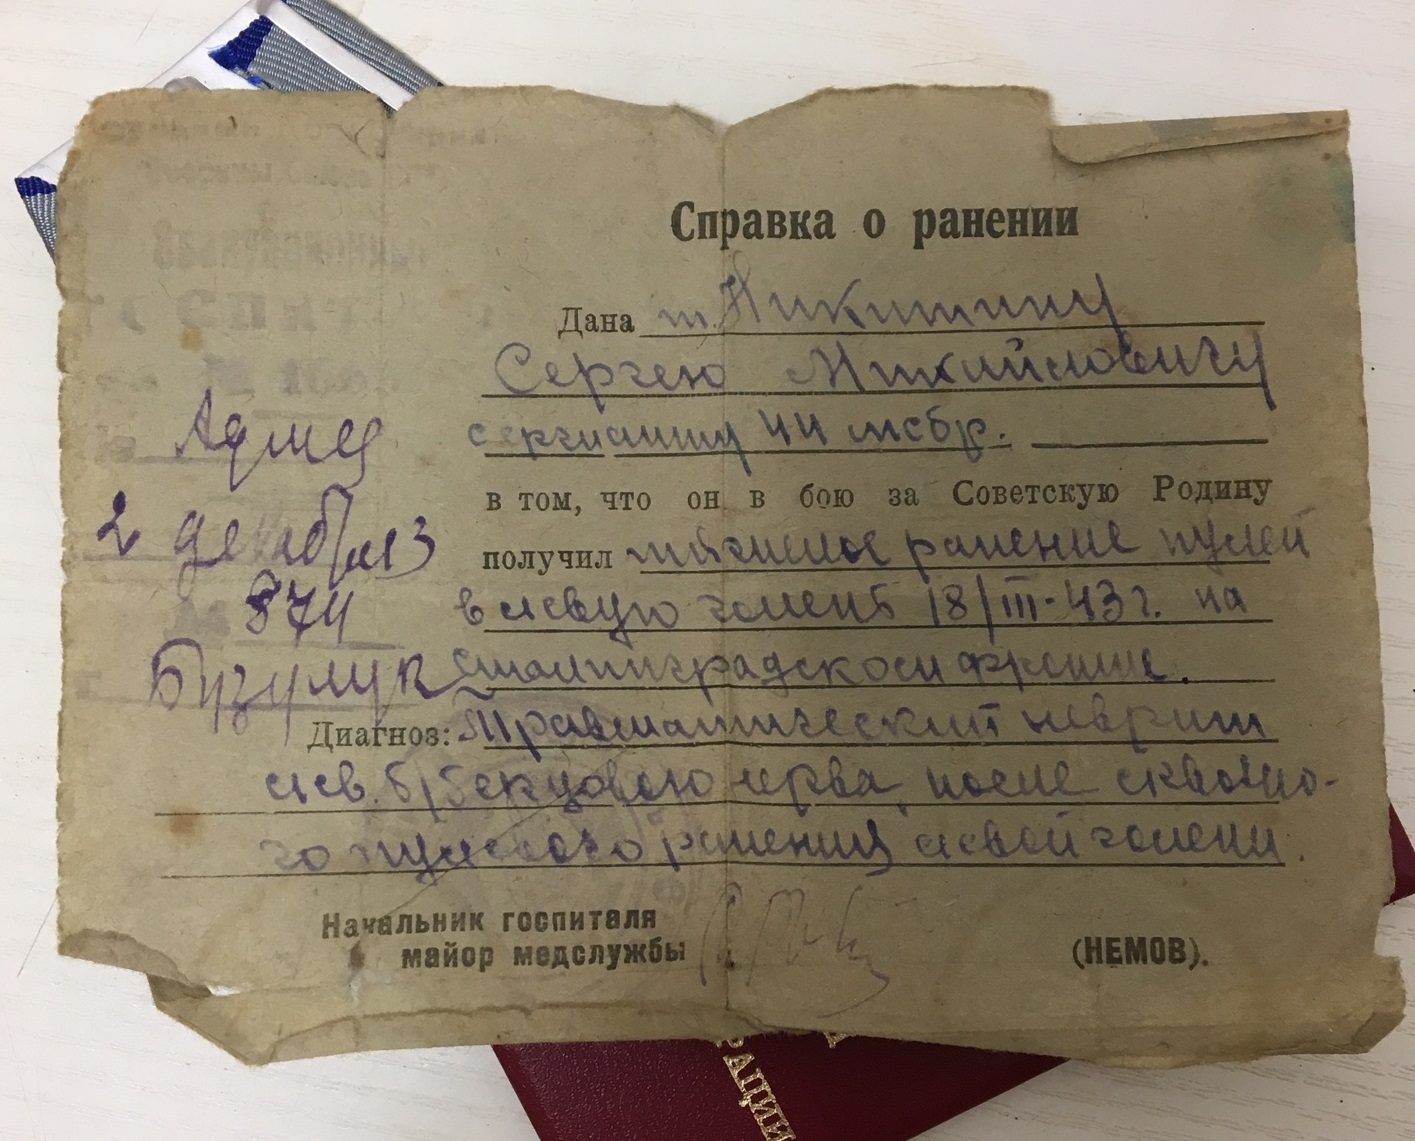 Эвакуационный
ГОСПИТ
№
Адмед
2 декабря 3
№ 874
Бузулук
Справка о ранении
Дана т. Никитину
Сергею Михайловичу
сержанту 44 мсбр.
в том, что он в бою за Советскую Родину
получил тяжелое ранение пулей
в левую голень 18/III-43г. на
Сталинградском фронте.
Диагноз: Травматический неврит
лев. б/берцового нерва, после сквозно-
го пулевого ранения левой голени.
Начальник госпиталя
майор медслужбы
(НЕМОВ).
РАЦИИ